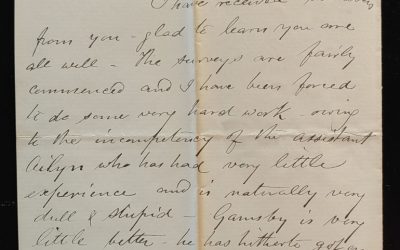 I have received
from you - glad to learn you are
all well - The surveys are fairly
commenced and I have been forced
to do some very hard work - owing
to the incompetency of the assistant
who has had very little
experience and is naturally very
dull & stupid - Gamsby is very
little better - he has hitherto got on